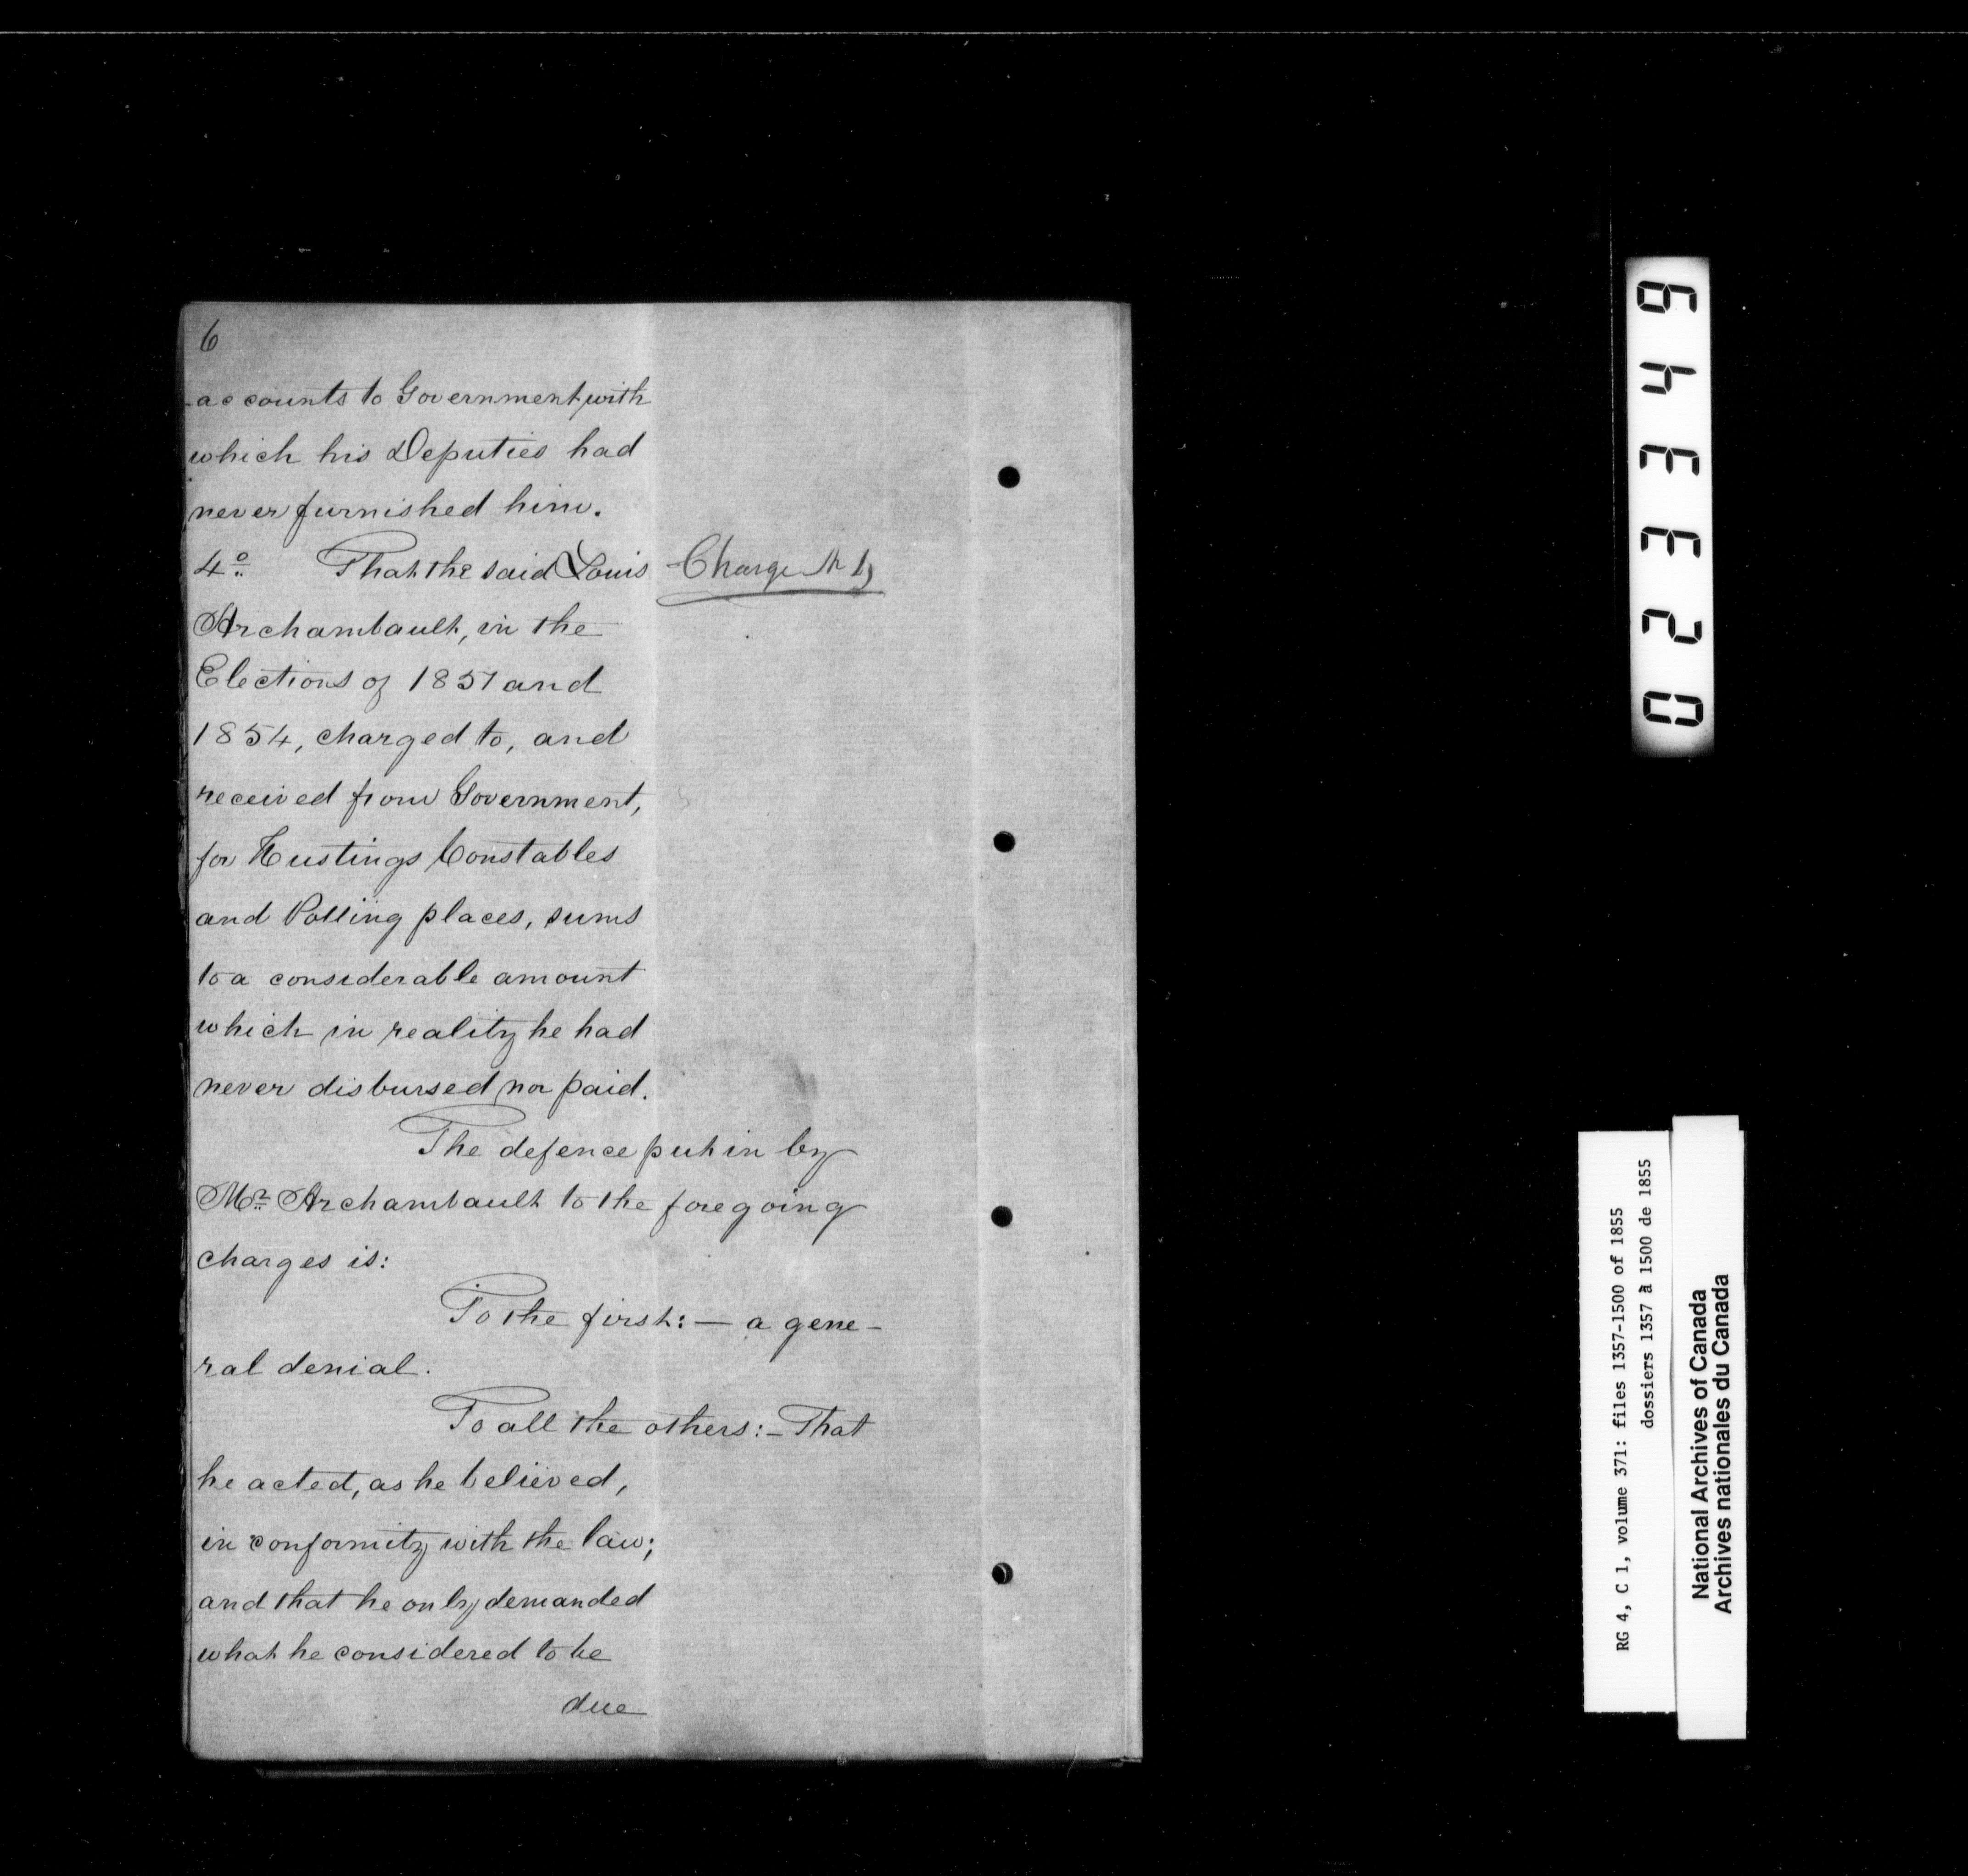 6
accounts to Government, with
which his Deputies had
never furnished him.
4º That the said Louis
Charge
Archambault, in the
Elections of 1851 and
1854, charged to, and
received from Government,
for Hustings Constables
and Polling places, sums
to a considerable amount
which in reality he had
never disbursed nor paid.
The defence put in by
Mr Archambault to the foregoing
charges is:
To the first: — a gene-
ral denial.
To all the others: — That
he acted, as he believed,
in conformity with the law;
and that he only demanded
what he considered to be
due
023349
RG 4, C 1, volume 371: files 1357-1500 of 1855
dossiers 1357 à 1500 de 1855
National Archives of Canada
Archives nationales du Canada